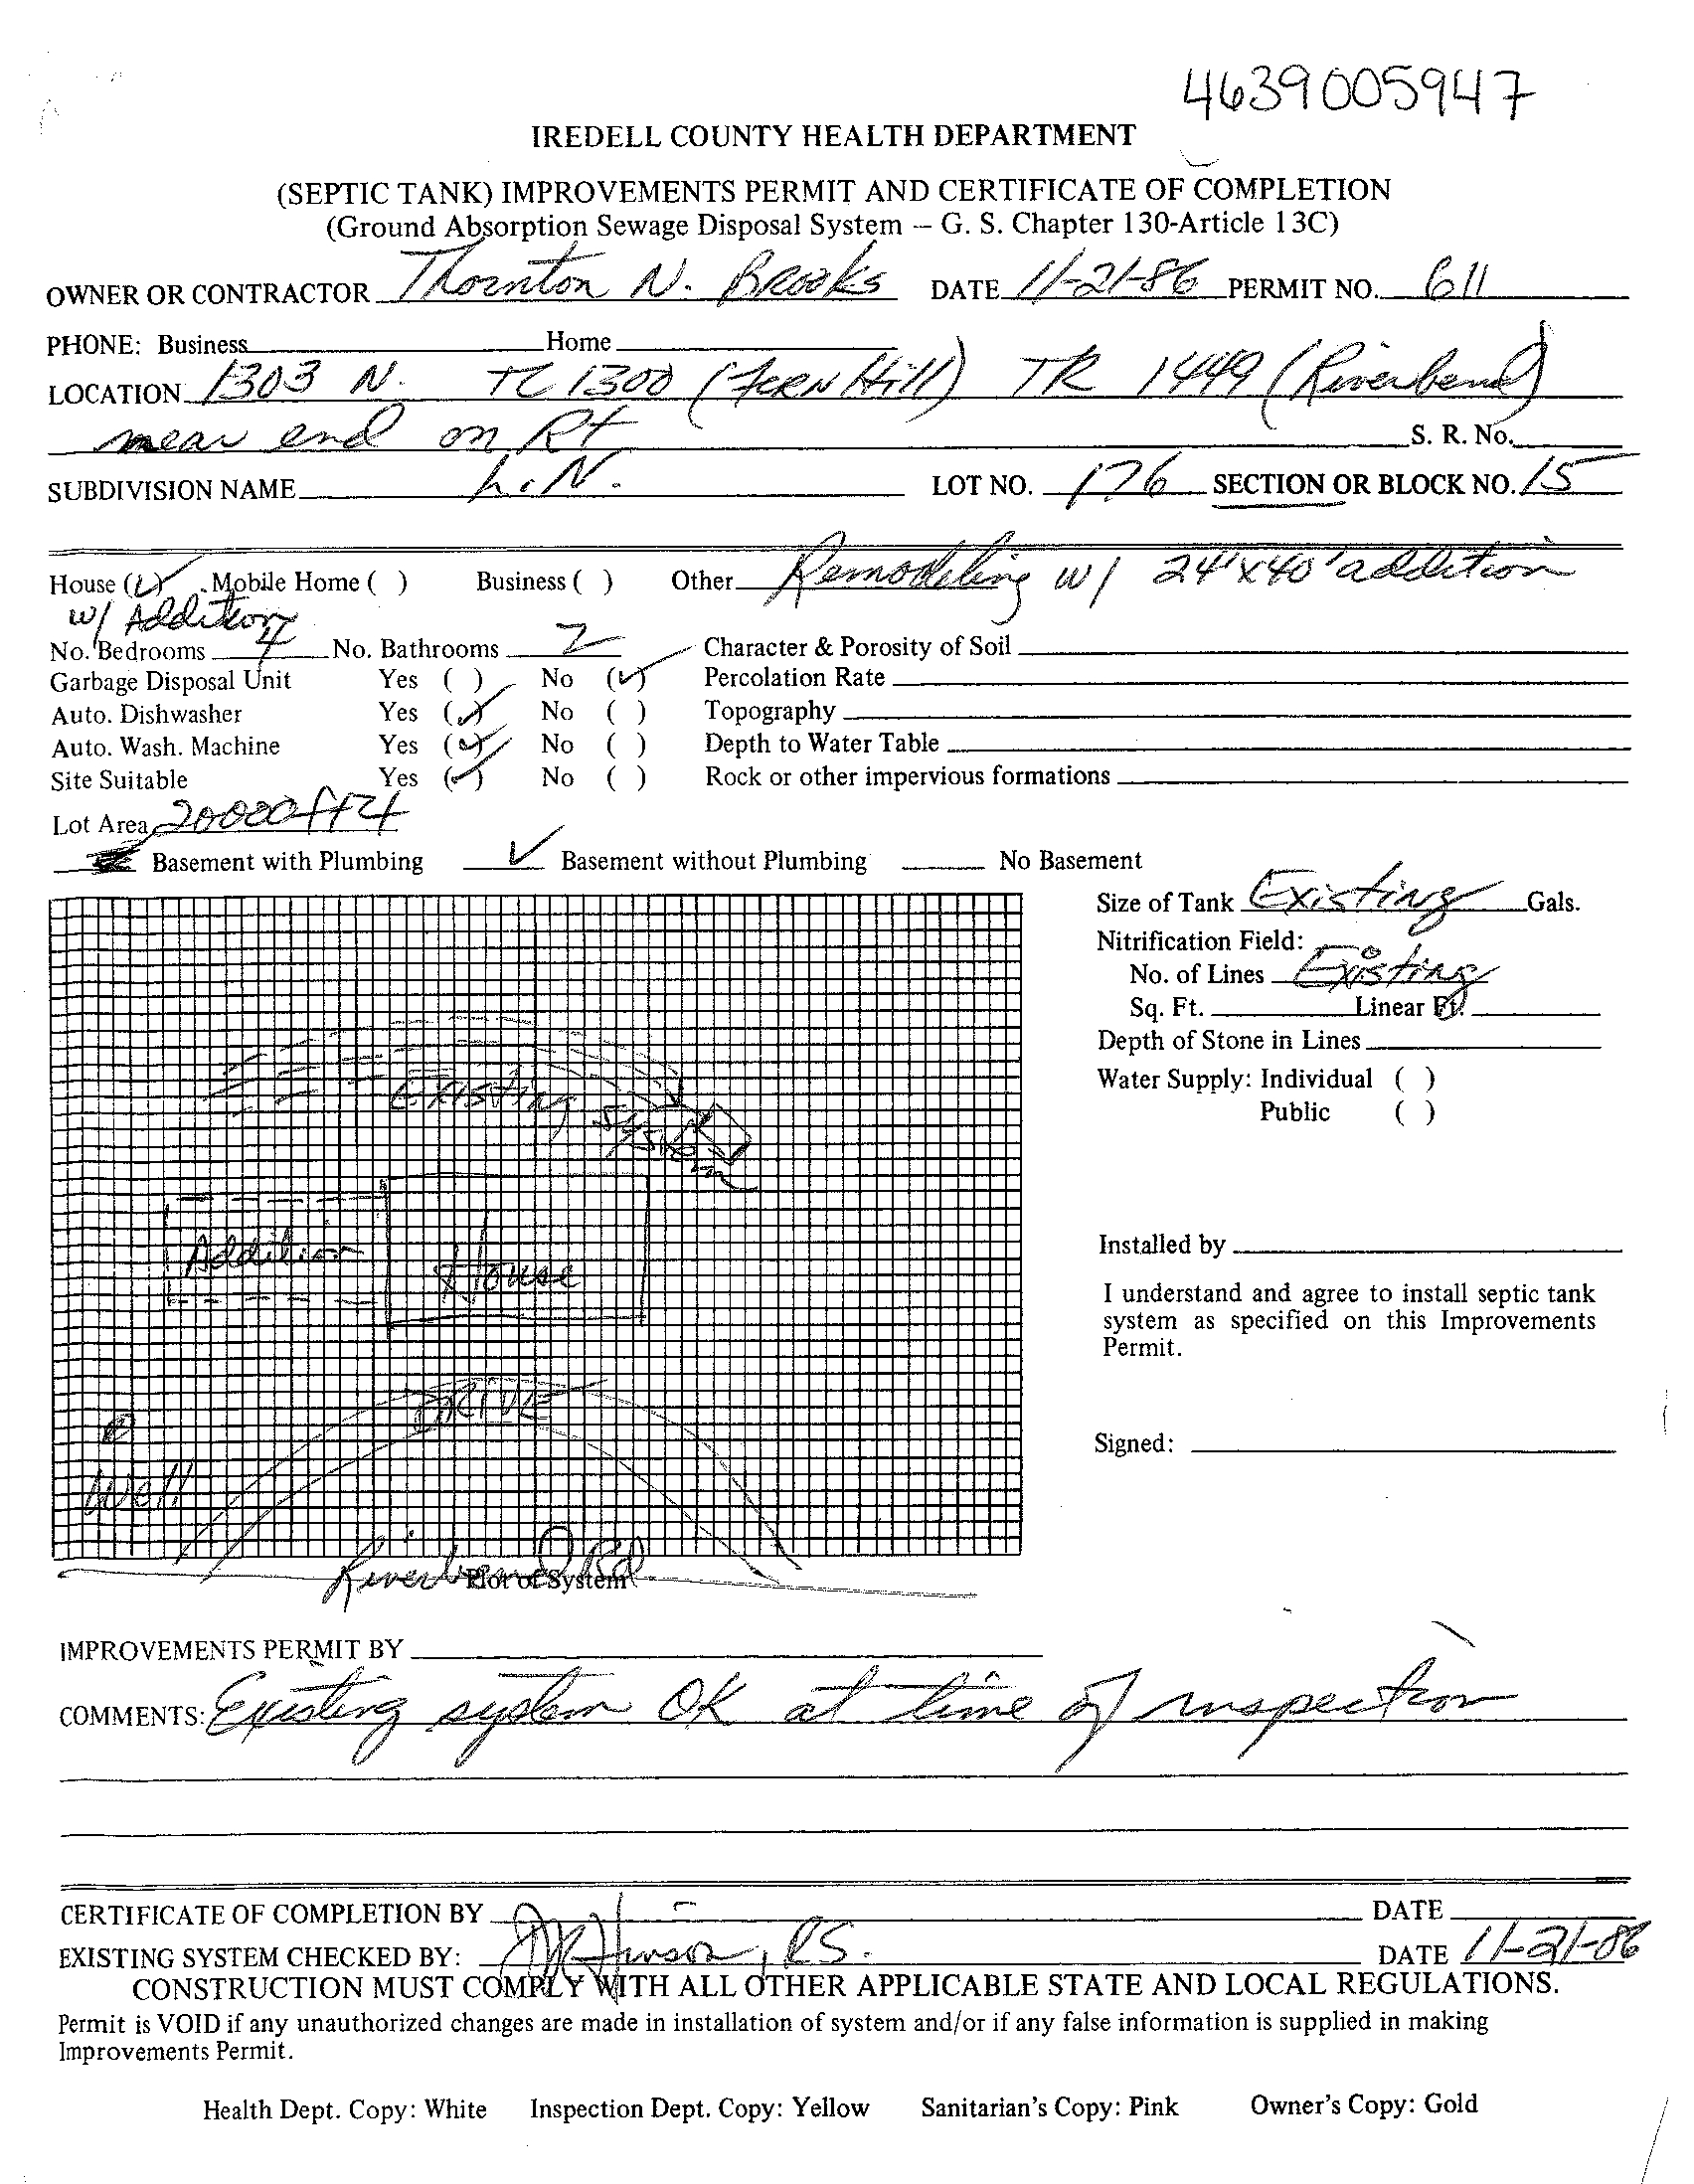 4639005947
IREDELL COUNTY HEALTH DEPARTMENT
(SEPTIC TANK) IMPROVEMENTS PERMIT AND CERTIFICATE OF COMPLETION
(Ground Absorption Sewage Disposal System – G. S. Chapter 130-Article 13C)
OWNER OR CONTRACTOR Thornton N. Brooks DATE 11-21-86 PERMIT NO. 611
PHONE: Business Home
LOCATION 1303 N. TL 1300 (Fern Hill) TR 1449 (Riverbend)
near end on Rt S. R. No.
SUBDIVISION NAME L.N. LOT NO. 176 SECTION OR BLOCK NO. 15
House (✓) Mobile Home ( ) Business ( ) Other Remodeling w/ 24'x40' addition
w/ Addition
No. Bedrooms 4 No. Bathrooms 2 Character & Porosity of Soil
Garbage Disposal Unit Yes ( ) No (✓) Percolation Rate
Auto. Dishwasher Yes (✓) No ( ) Topography
Auto. Wash. Machine Yes (✓) No ( ) Depth to Water Table
Site Suitable Yes (✓) No ( ) Rock or other impervious formations
Lot Area 20000
Basement with Plumbing ✓ Basement without Plumbing No Basement
Size of Tank Existing Gals.
Nitrification Field:
No. of Lines Existing
Sq. Ft. Linear Ft.
Depth of Stone in Lines
Water Supply: Individual ( )
Public ( )
Existing System
Addition
House
DRIVE
Well
Installed by
I understand and agree to install septic tank
system as specified on this Improvements
Permit.
Signed:
Riverbend Rd
Plot of System
IMPROVEMENTS PERMIT BY
COMMENTS: Existing system OK at time of inspection
CERTIFICATE OF COMPLETION BY DATE
EXISTING SYSTEM CHECKED BY: Hinson, RS. DATE 11-21-86
CONSTRUCTION MUST COMPLY WITH ALL OTHER APPLICABLE STATE AND LOCAL REGULATIONS.
Permit is VOID if any unauthorized changes are made in installation of system and/or if any false information is supplied in making
Improvements Permit.
Health Dept. Copy: White Inspection Dept. Copy: Yellow Sanitarian's Copy: Pink Owner's Copy: Gold